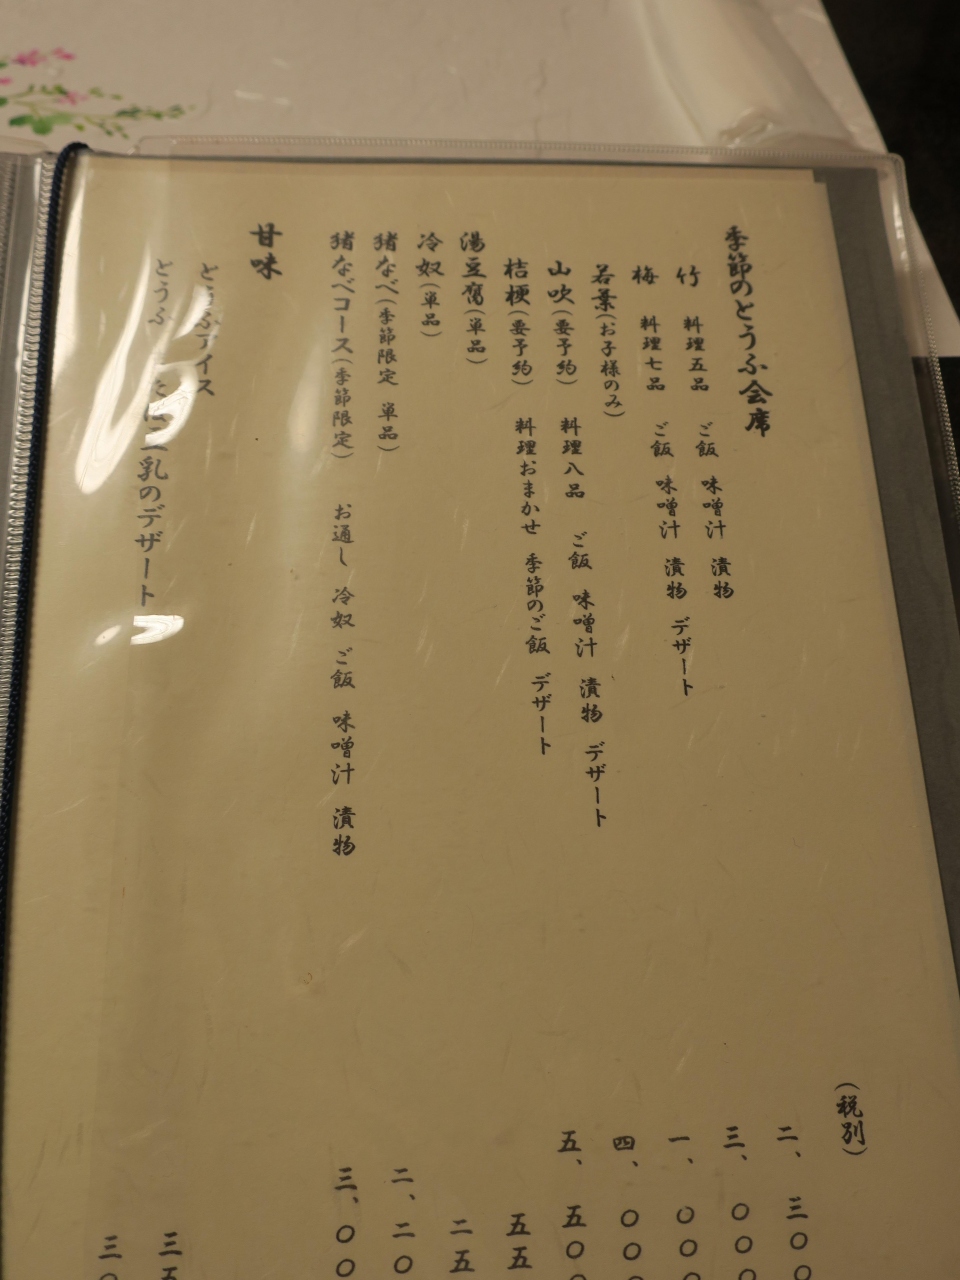 季節のとうふ会席
(税別)
竹 料理五品 ご飯 味噌汁 漬物 二、三〇〇
梅 料理七品 ご飯 味噌汁 漬物 デザート 三、〇〇〇
若葉(お子様のみ) 一、〇〇〇
山吹(要予約) 料理八品 ご飯 味噌汁 漬物 デザート 四、〇〇
桔梗(要予約) 料理おまかせ 季節のご飯 デザート 五、五〇
湯豆腐(単品) 五五
冷奴(単品) 二五
猪なべ(季節限定 単品) 二、二〇
猪なべコース(季節限定) お通し 冷奴 ご飯 味噌汁 漬物 三、〇〇
甘味
とうふアイス 三五
とうふ 乳のデザート 三